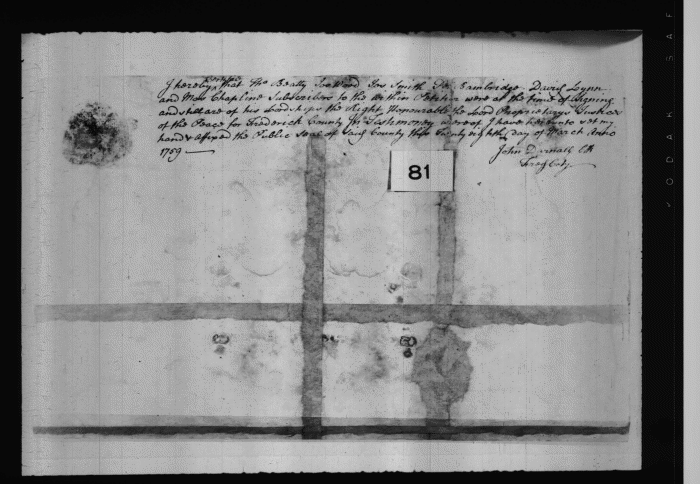 I hereby Certifie that Tho Beatty Jos Wood Jos Smith Pr Bainbridge David Lynn
and Mos Chapline Subscribers to the Within Petition were at the time of Signing
and still are of his Lordships the Right Honourable the Lord Proprietarys Justices
of the Peace for Frederick County In Testimony whereof I have hereunto set my
hand & affixed the Public Seal of Said County this Twenty eighth day of March Anno
1759
John Darnall Clk
Fredk Coty
81
KODAK SAF